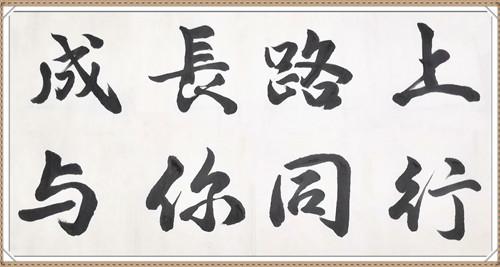 成長路上
与你同行